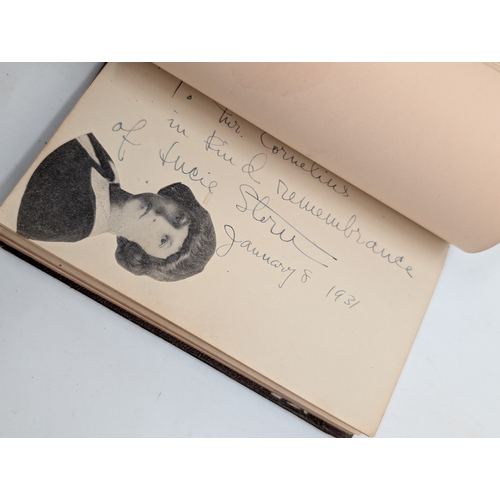 To Mr. Cornelius
in kind remembrance
of Lucie Stern
January 8 1931